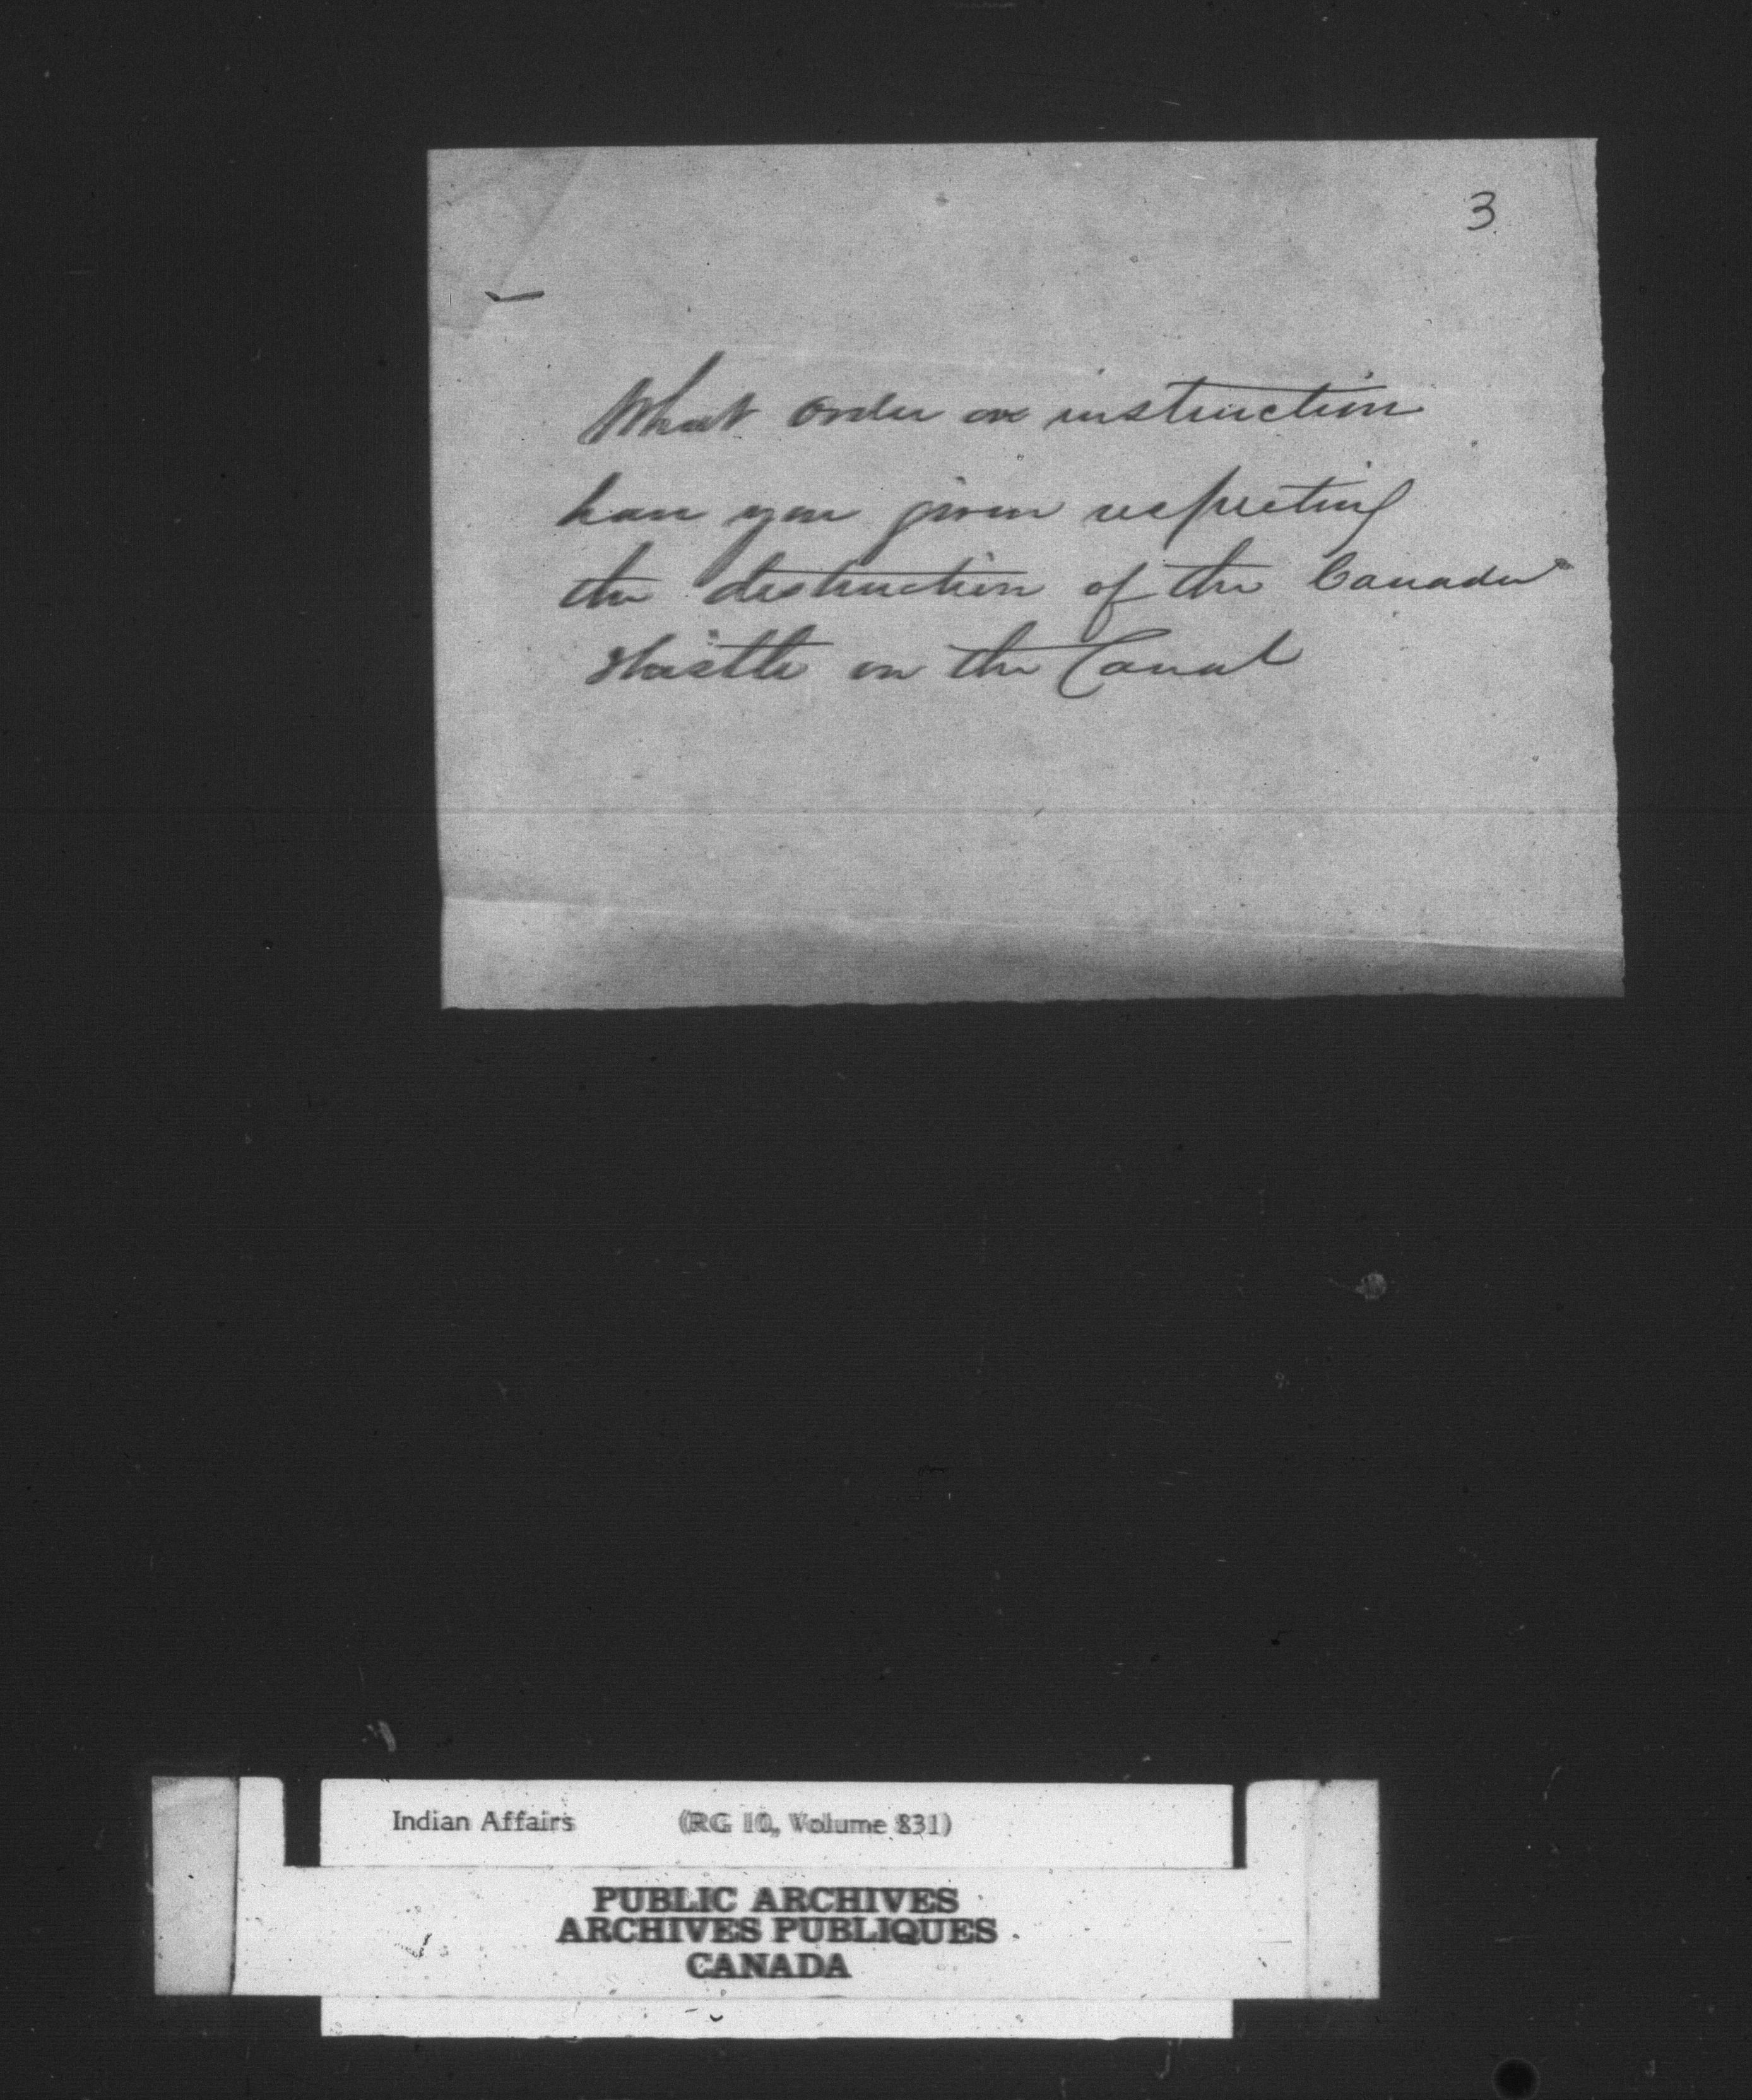 3
What order or instruction
have you given respecting
the destruction of the Canada
thistle on the Canal
Indian Affairs (RG 10, Volume 831)
PUBLIC ARCHIVES
ARCHIVES PUBLIQUES
CANADA